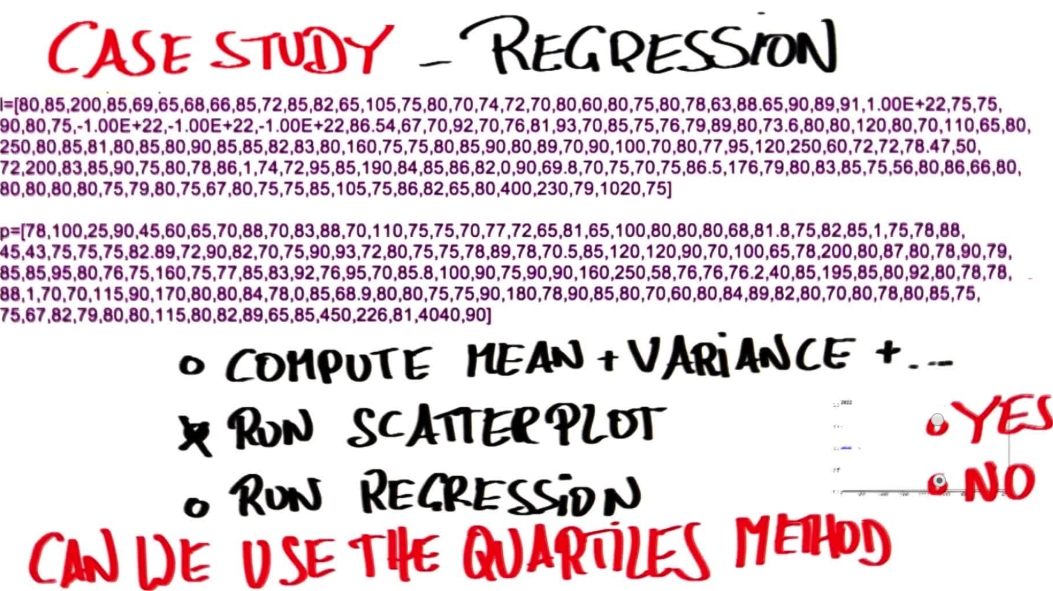 CASE STUDY - REGRESSION
l=[80,85,200,85,69,65,68,66,85,72,85,82,65,105,75,80,70,74,72,70,80,60,80,75,80,78,63,88.65,90,89,91,1.00E+22,75,75,
90,80,75,-1.00E+22,-1.00E+22,-1.00E+22,86.54,67,70,92,70,76,81,93,70,85,75,76,79,89,80,73.6,80,80,120,80,70,110,65,80,
250,80,85,81,80,85,80,90,85,85,82,83,80,160,75,75,80,85,90,80,89,70,90,100,70,80,77,95,120,250,60,72,72,78.47,50,
72,200,83,85,90,75,80,78,86,1,74,72,95,85,190,84,85,86,82,0,90,69.8,70,75,70,75,86.5,176,79,80,83,85,75,56,80,86,66,80,
80,80,80,80,75,79,80,75,67,80,75,75,85,105,75,86,82,65,80,400,230,79,1020,75]
p=[78,100,25,90,45,60,65,70,88,70,83,88,70,110,75,75,70,77,72,65,81,65,100,80,80,80,68,81.8,75,82,85,1,75,78,88,
45,43,75,75,75,82.89,72,90,82,70,75,90,93,72,80,75,75,78,89,78,70.5,85,120,120,90,70,100,65,78,200,80,87,80,78,90,79,
85,85,95,80,76,75,160,75,77,85,83,92,76,95,70,85.8,100,90,75,90,90,160,250,58,76,76,76.2,40,85,195,85,80,92,80,78,78,
88,1,70,70,115,90,170,80,80,84,78,0,85,68.9,80,80,75,75,90,180,78,90,85,80,70,60,80,84,89,82,80,70,80,78,80,85,75,
75,67,82,79,80,80,115,80,82,89,65,85,450,226,81,4040,90]
COMPUTE MEAN + VARIANCE + ...
RUN SCATTERPLOT
YES
RUN REGRESSION
NO
CAN WE USE THE QUARTILES METHOD